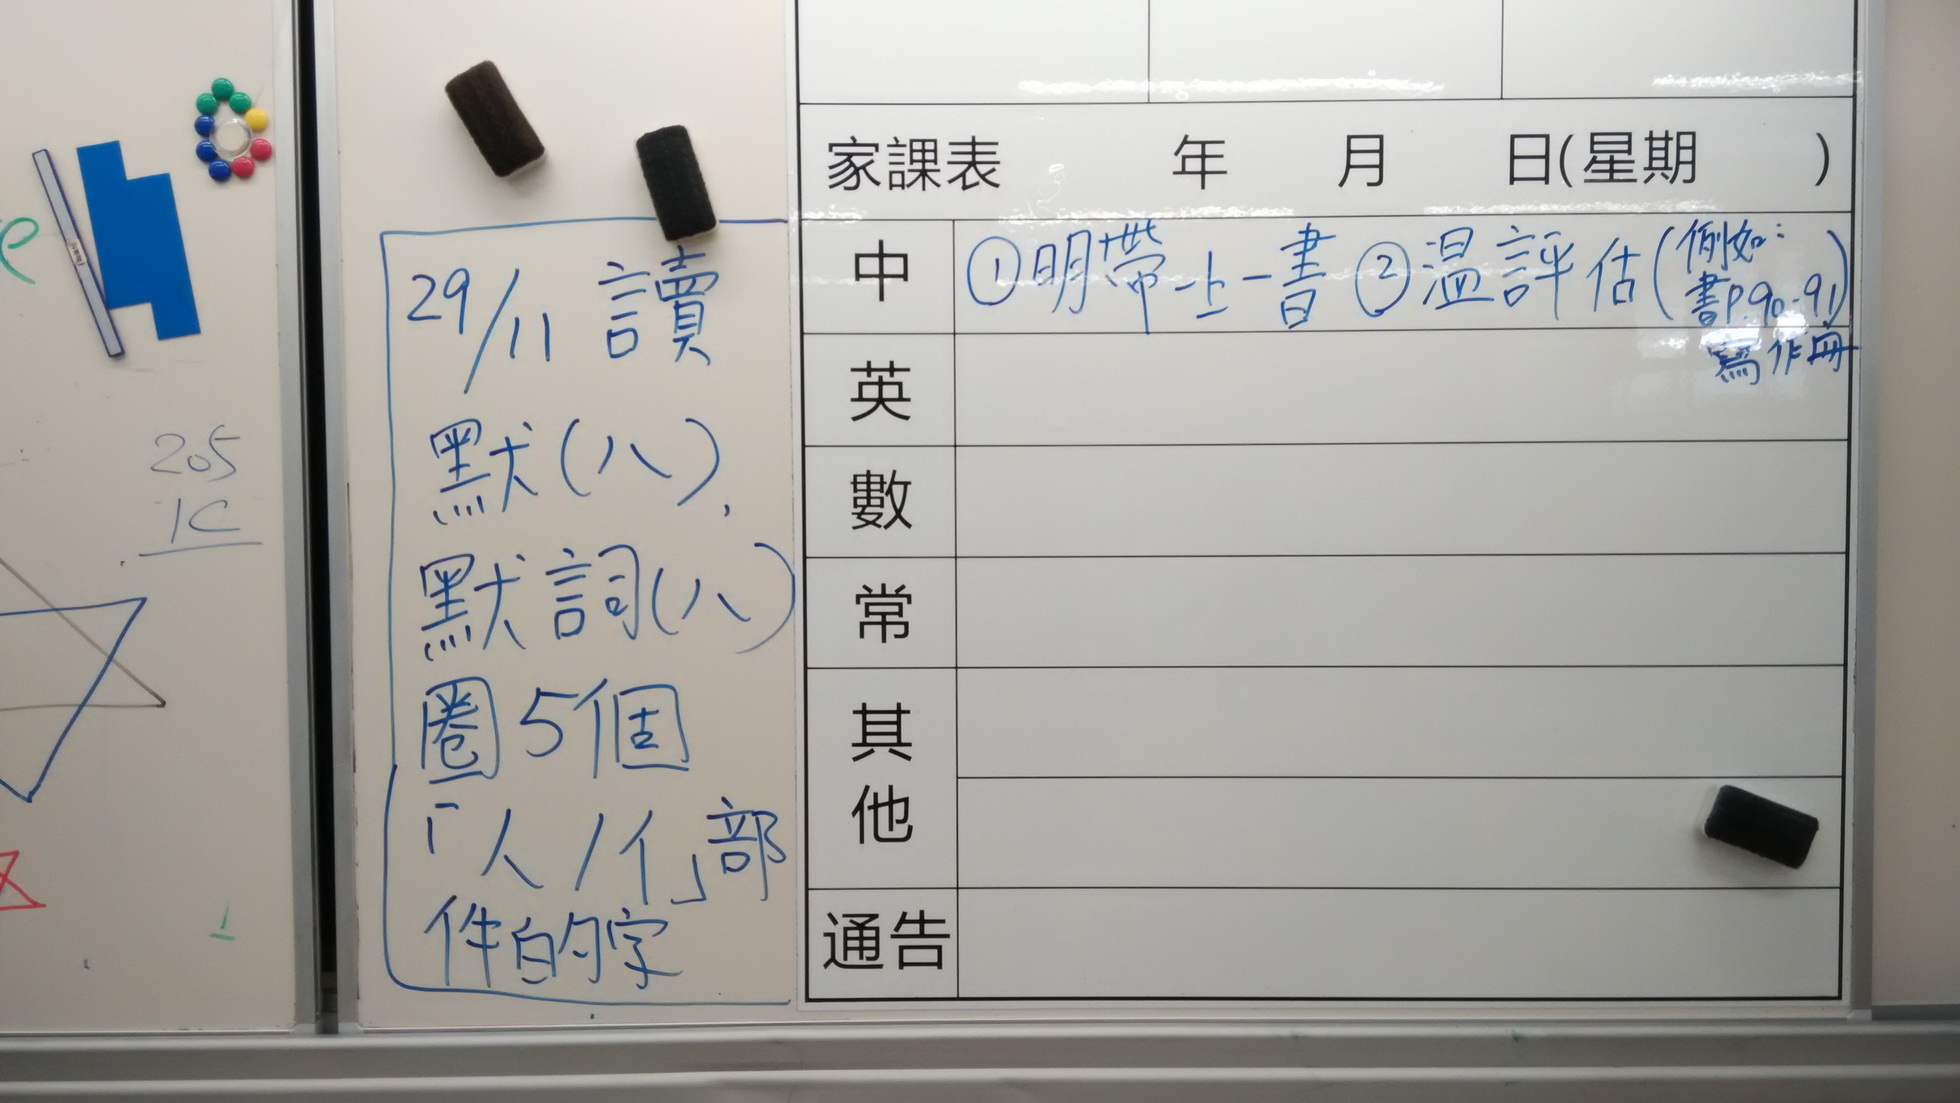 205
1C
29/11 讀
默(八),
默詞(八)
圈5個
「人/亻」部
件的字
家課表 年 月 日(星期 )
中 ①明帶上一書 ②温評估(例如:
書P.90-91)
寫作冊
英
數
常
其他
通告